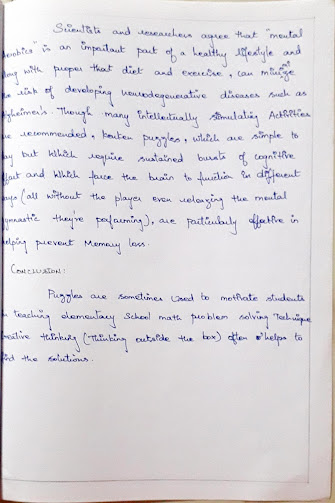 Scientists and researchers agree that "mental
Aerobics" is an important part of a healthy lifestyle and
along with proper that diet and exercise, can minize
the risk of developing neurodegenerative diseases such as
Alzheimer's. Though many intellectually stimulating Activities
are recommended, puzzles, which are simple to
play but Which require sustained bursts of cognitive
effort and Which force the brain to function in different
ways (all without the player even relaizing the mental
gymnastic they're performing), are particularly effective in
helping prevent Memory loss.
CONCLUSION:
Puzzles are sometimes Used to motivate students
in teaching elementary School math problem solving Technique
creative thinking ("Thinking outside the box) often helps to
find the solutions.